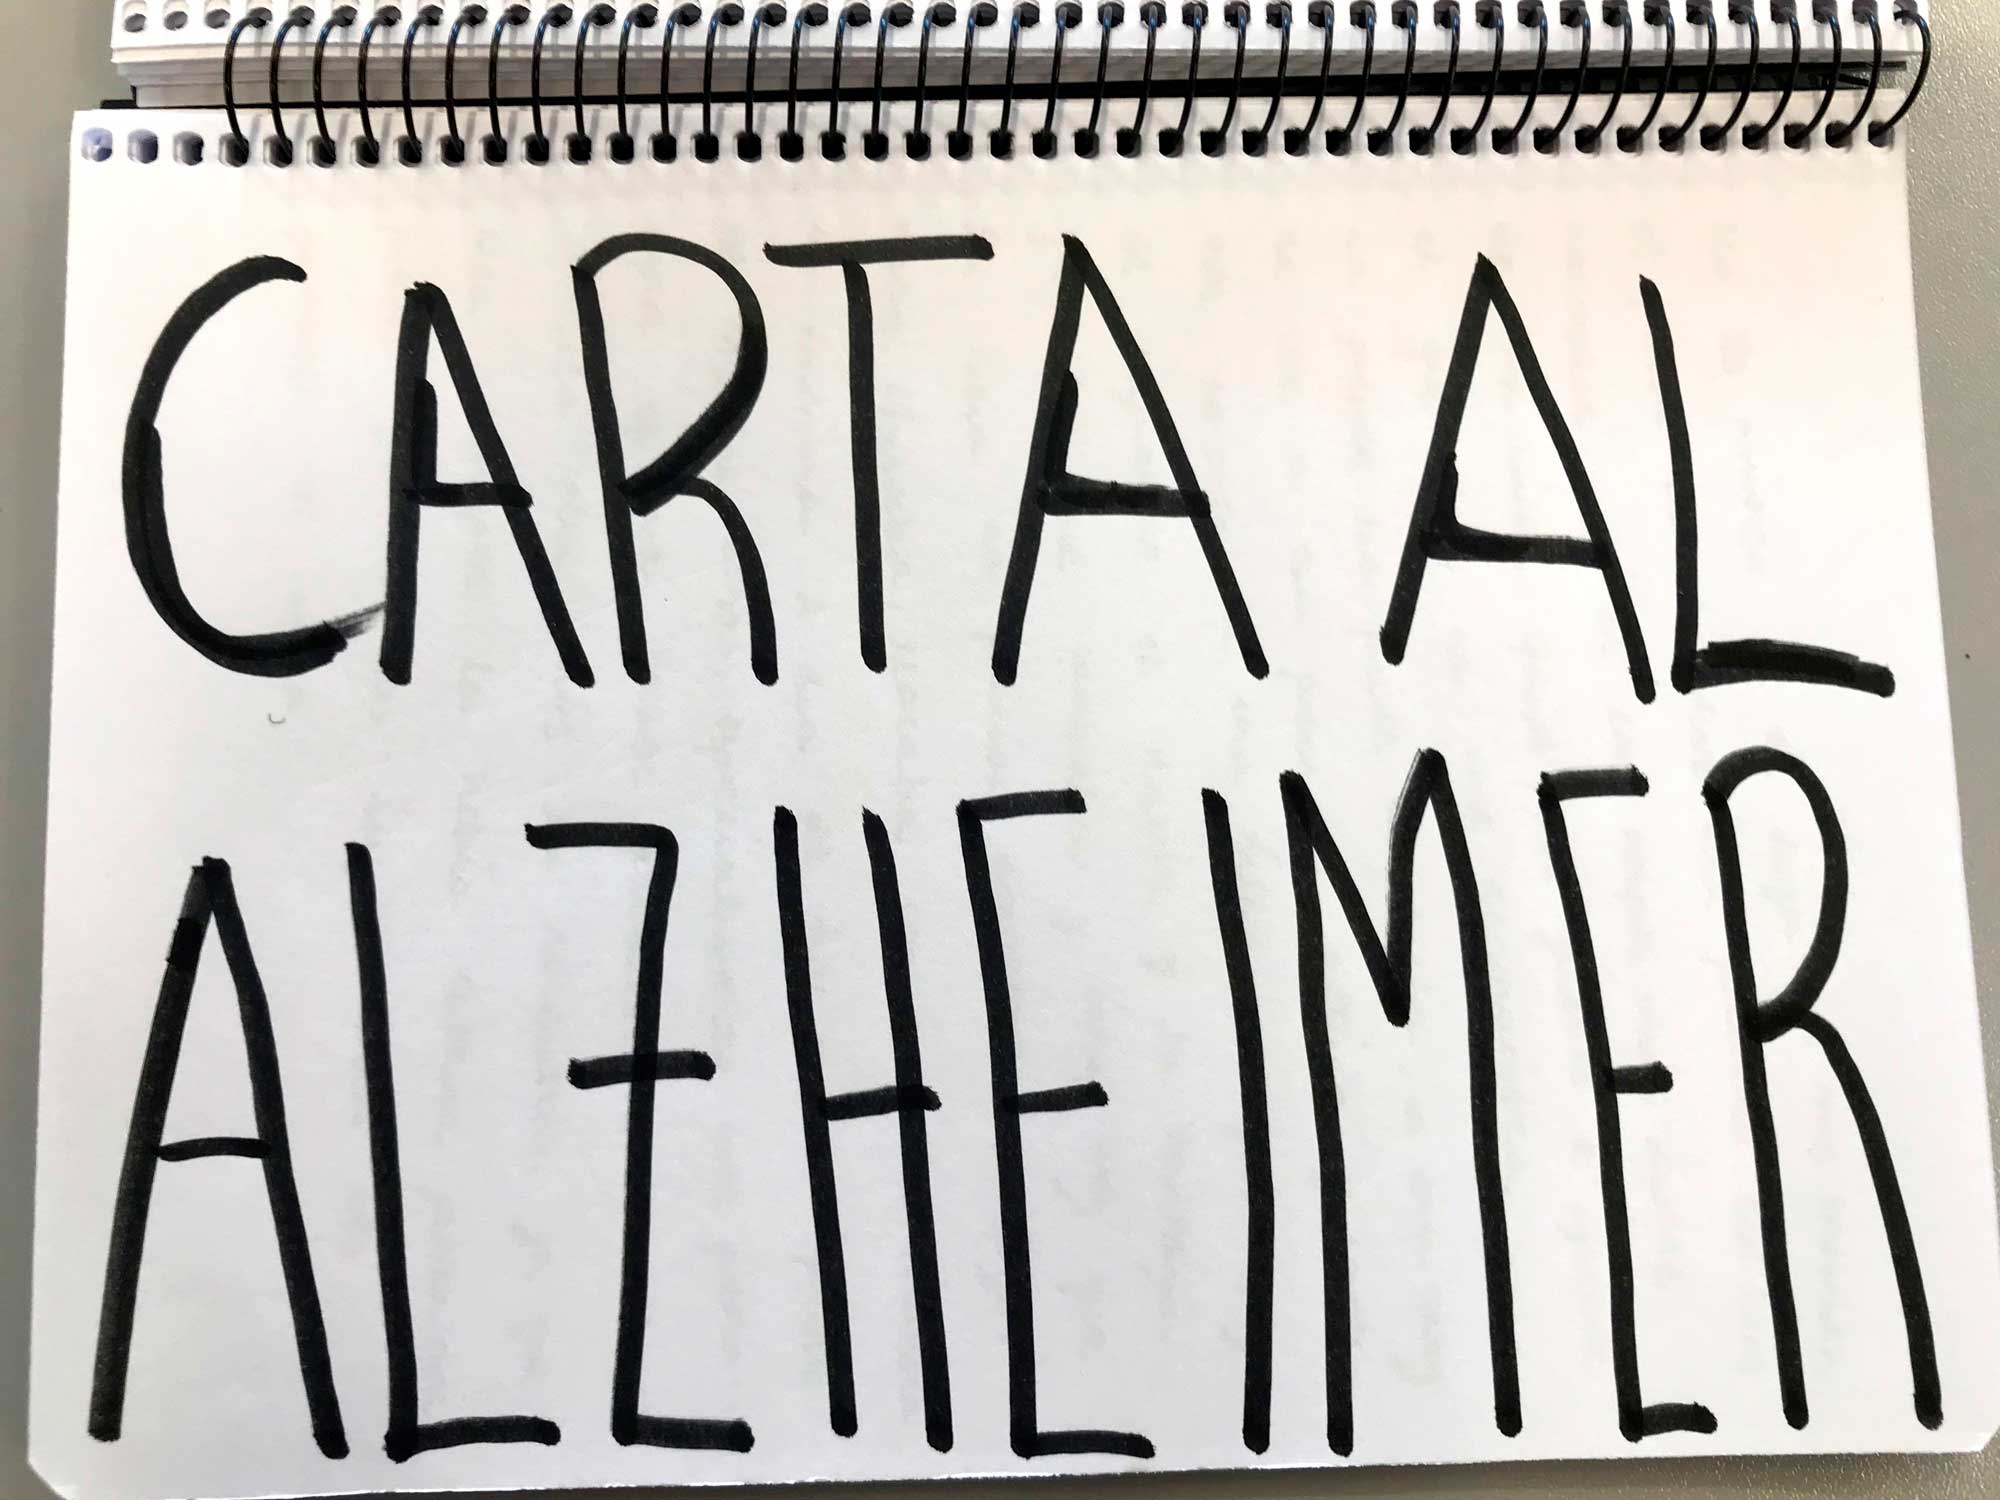 CARTA AL
ALZHEIMER